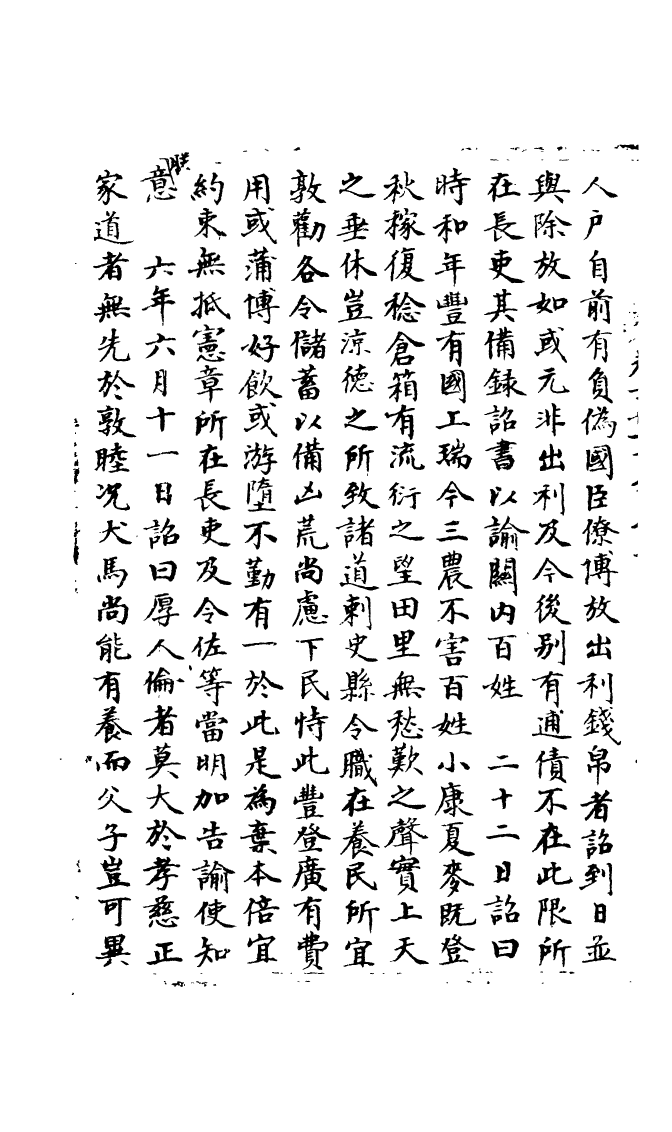 人戶自前有負偽國臣僚博放出利錢帛者詔到日並
與除放如或元非出利及今後别有逋債不在此限所
在長吏其備録詔書以諭闗内百姓　二十二日詔曰
時和年豐有國上瑞今三農不害百姓小康夏麥既登
秋稼復稔倉箱有流衍之望田里無愁歎之聲實上天
之垂休豈涼德之所致諸道刺史縣令職在養民所宜
敦勸各令儲蓄以備凶荒尚慮下民恃此豐登廣有費
用或蒲博好飲或游墮不勤有一於此是為棄本倍宜
約束無抵憲章所在長吏及令佐等當明加告諭使知
朕意　六年六月十一日詔曰厚人倫者莫大於孝慈正
家道者無先於敦睦况犬馬尚能有養而父子豈可異